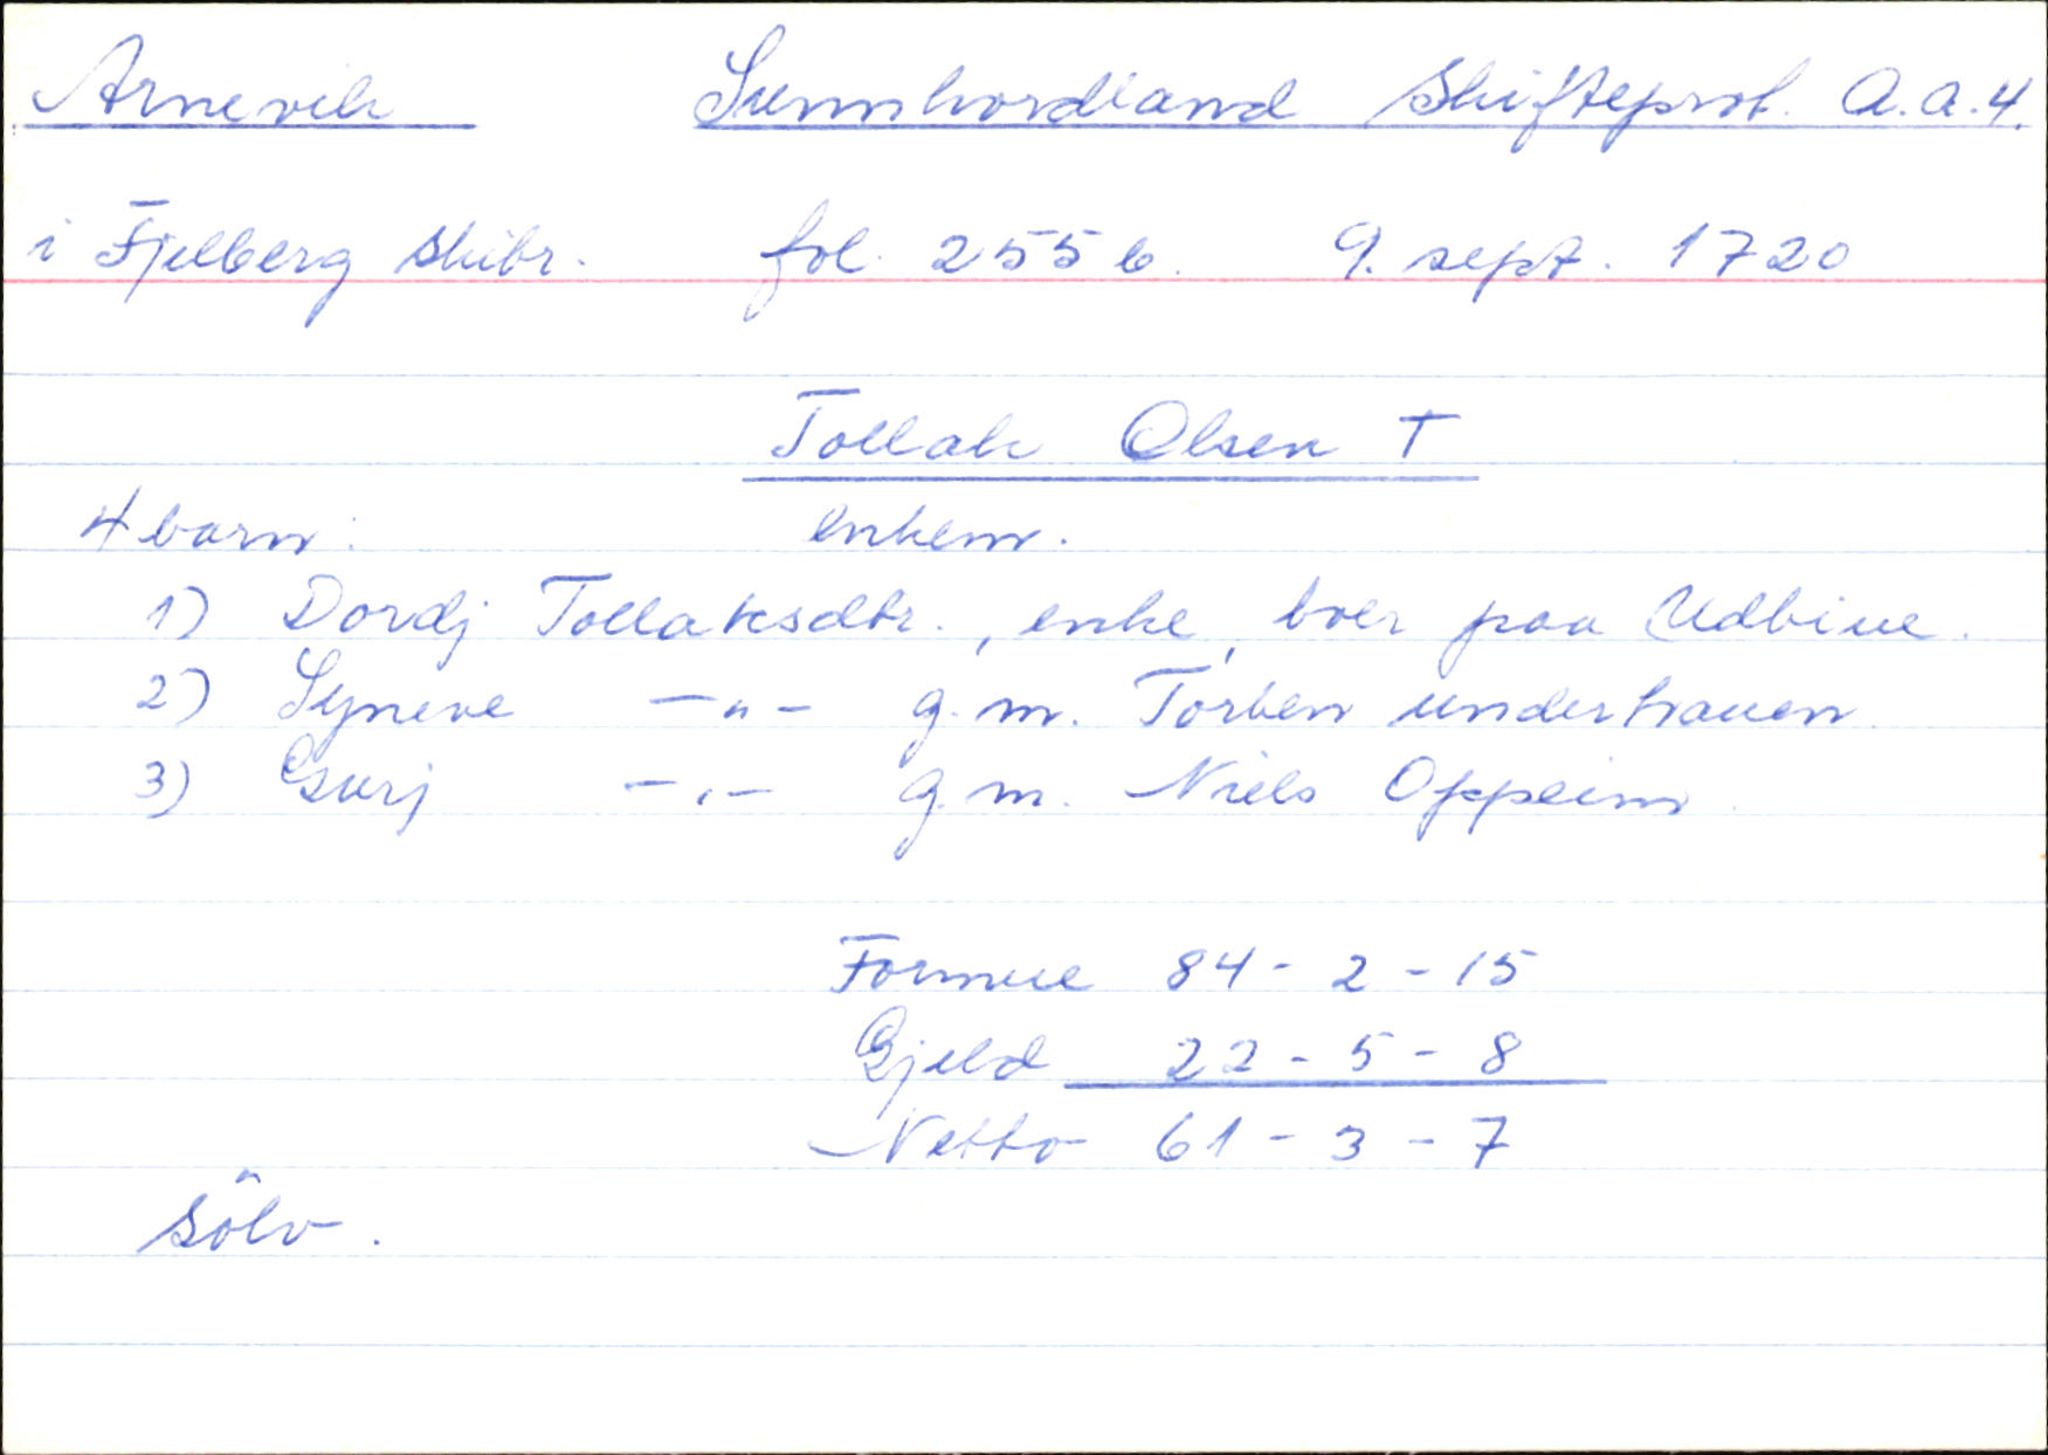 Arnevik Sunnhordland Skifteprot. A.a.4.
i Fjelberg skibr. fol. 255 b. 9. sept. 1720
Tollak Olsen †
4 barn: enkem.
1) Dordj Tollaksdtr., enke, boer paa Udbiue.
2) Syneve —"— g.m. Torben underhauen.
3) Gurj —"— g.m. Niels Oppeim.
Formue 84 - 2 - 15
Gjeld 22 - 5 - 8
Netto 61 - 3 - 7
sölv.